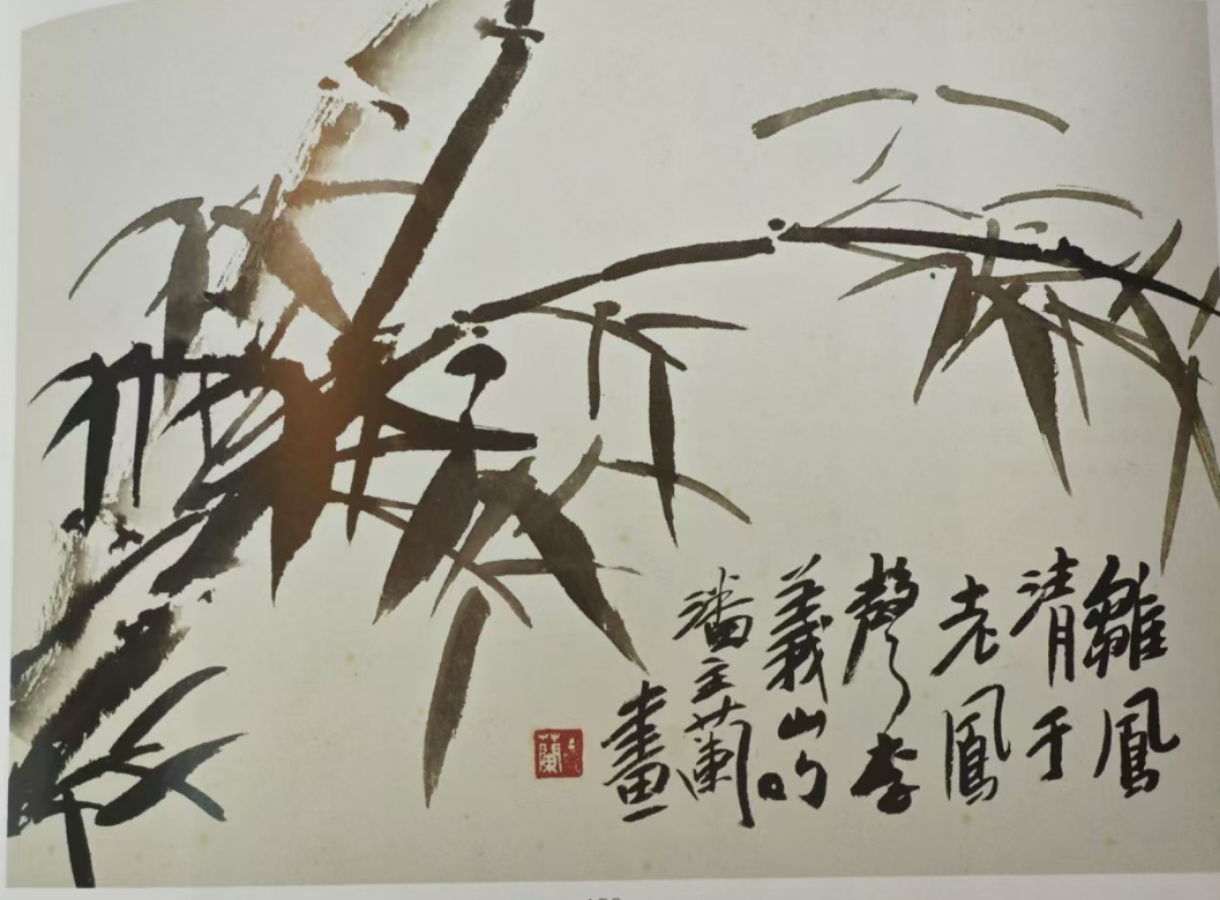 雛鳳
清于
老鳳
聲李
義山句
潘主蘭
畫
蘭